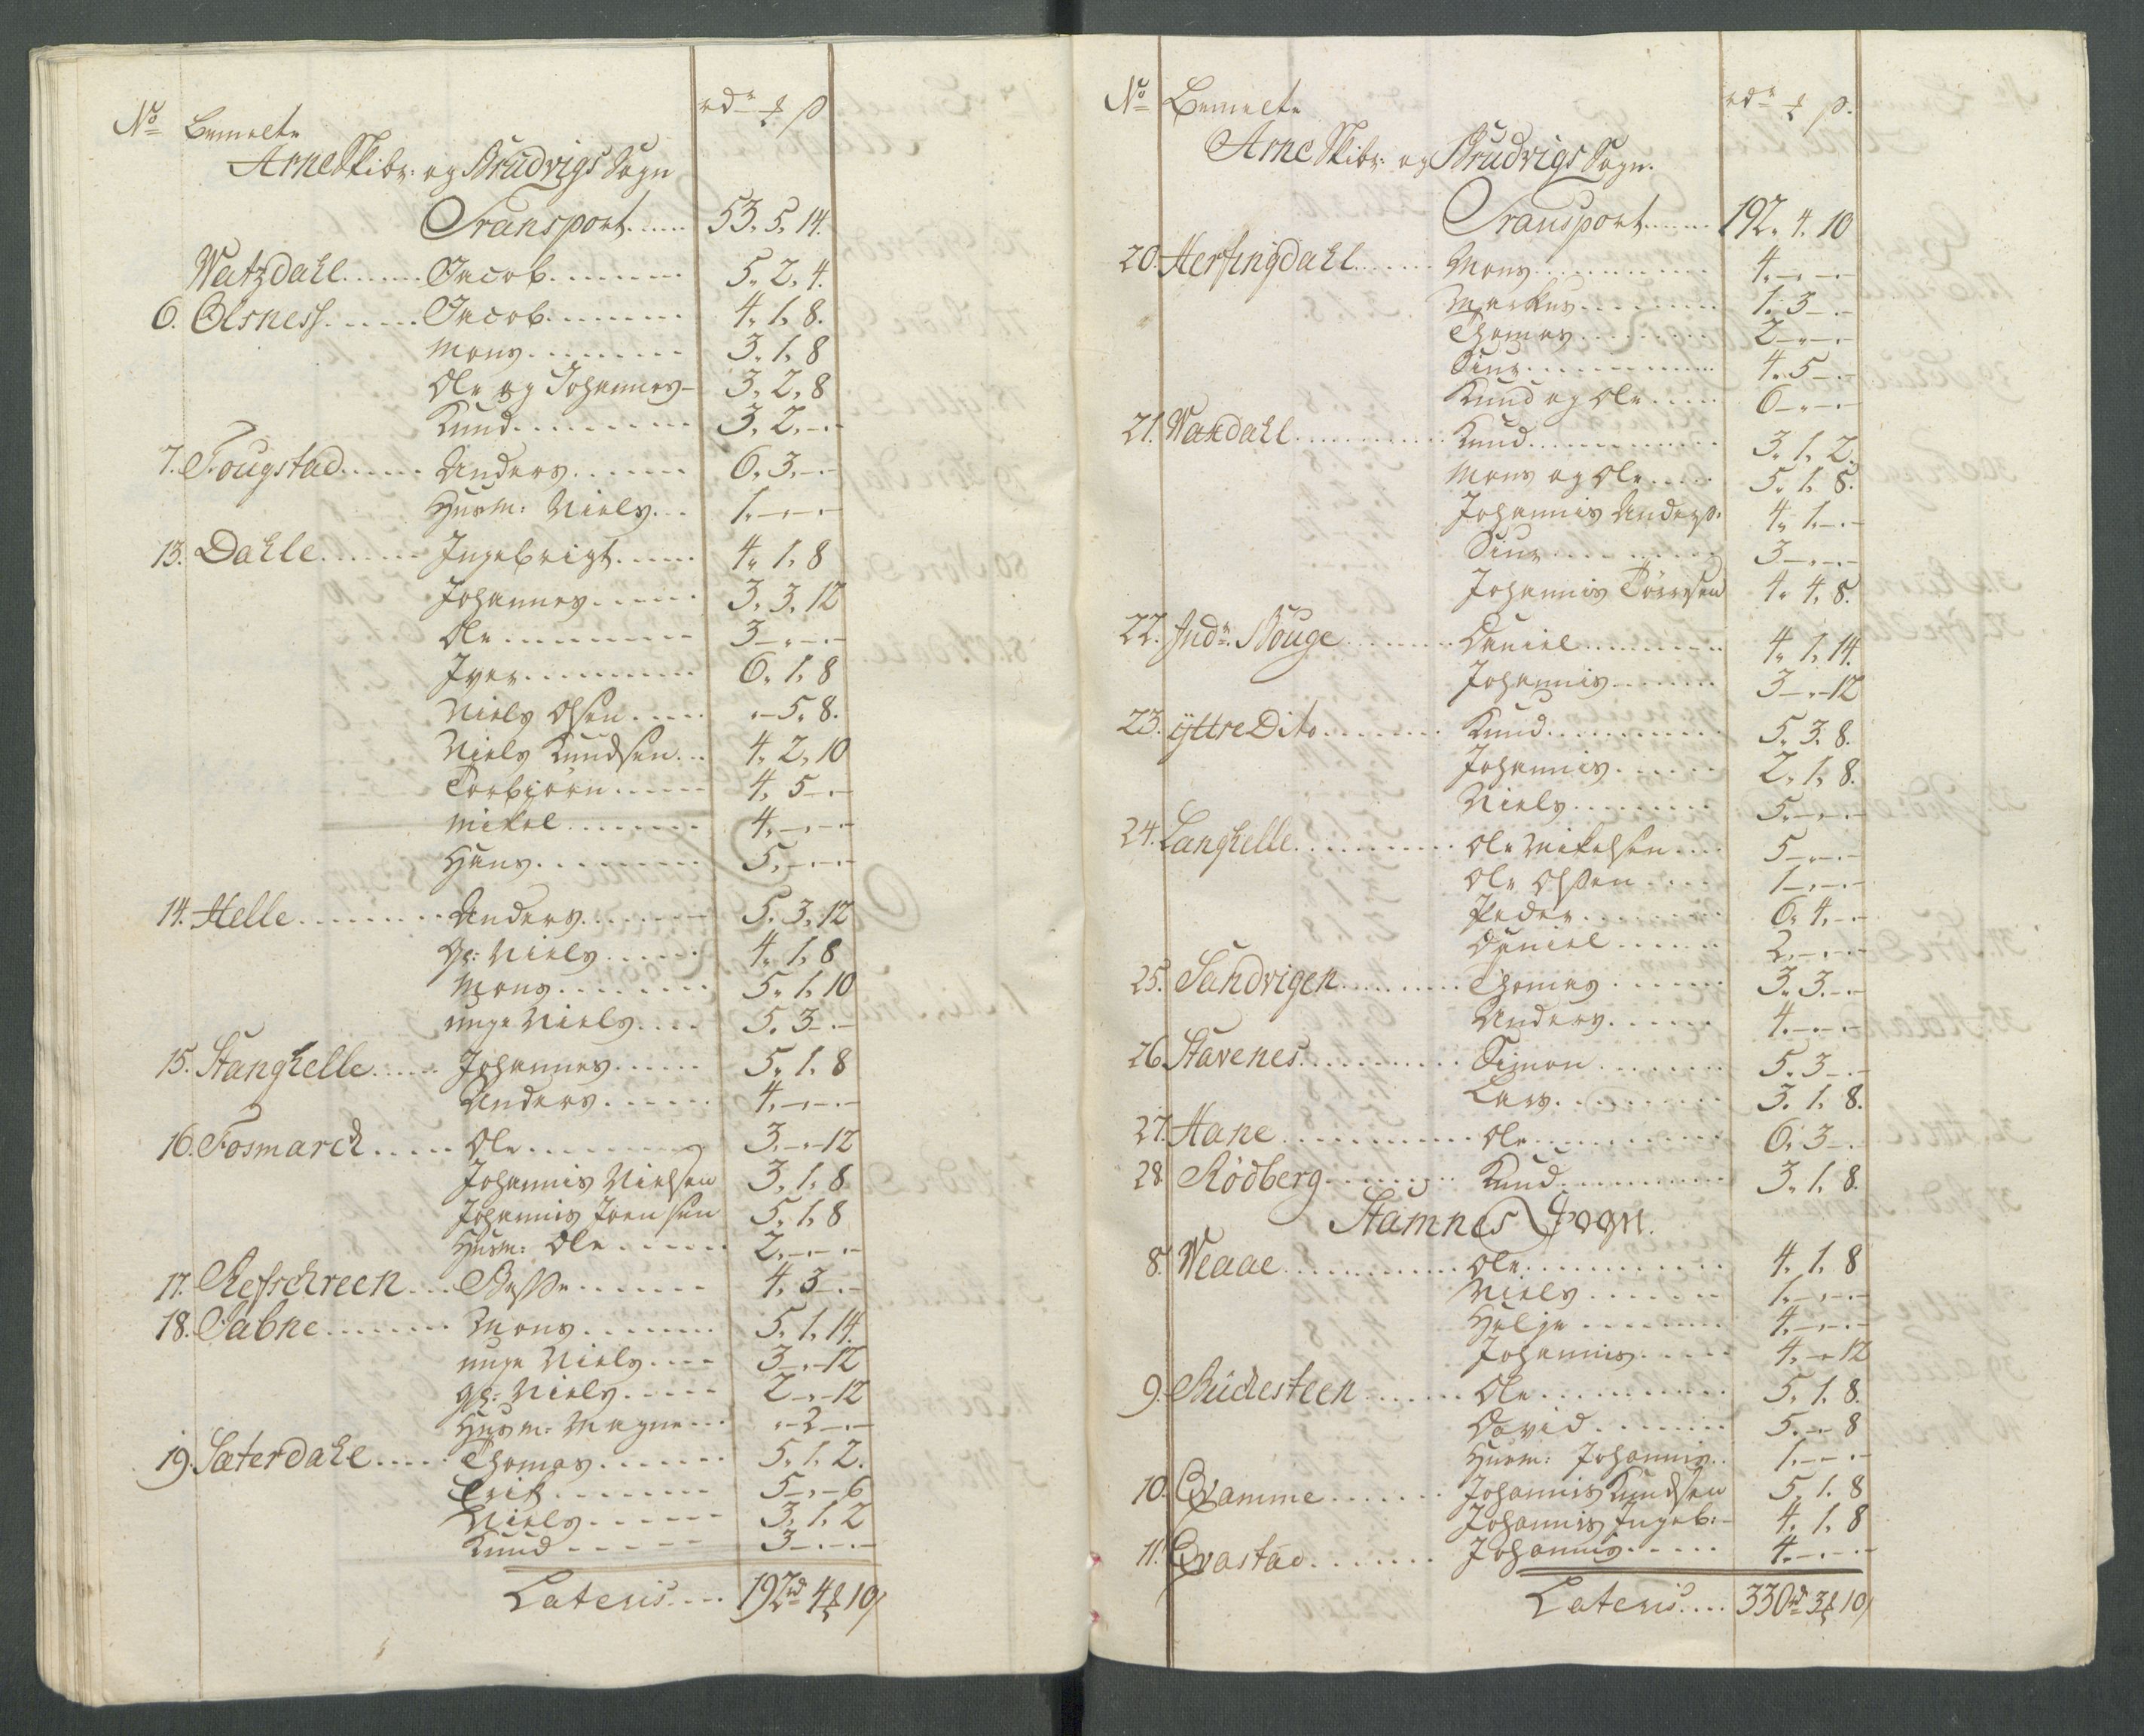 No Bemelte rdr ₰ ß
Arne Skibr: og Brudvigs Sogn
Transport...... 53. 5. 14.
Watzdahl...... Jacob........ 5. 2. 4.
6. Olsness...... Jacob........ 4. 1. 8.
Mons......... 3. 1. 8
Ole og Johannes- 3. 2. 8
Knud......... 3. 2. -.-
7. Fougstad..... Anders...... 6. 3. -.-
Husm: Niels... 1. -.-.-
13. Dahle...... Ingebrigt..... 4. 1. 8
Johannes...... 3. 3. 12
Ole......... 3-.-.-
Iver......... 6. 1. 8
Niels Olsen..... .-5. 8.
Niels Knudsen... 4. 2. 10
Torbiørn..... 4. 5-.-
Mikel....... 4. -.-.-
Hans........ 5. -.-.-
14. Helle........ Anders....... 5. 3. 12
Gl: Niels...... 4. 1. 8
Mons........ 5. 1. 10
unge Niels.... 5. 3-.-
15. Stanghelle..... Johannes...... 5. 1. 8
Anders...... 4. -.-.-
16. Fosmarck..... Ole........ 3. -.-12
Johannis Nielsen 3. 1. 8
Johannis Joensen 5. 1. 8
Husm: Ole...... 2. -.-.-
17. Refschreen... Besse....... 4. 3-.-
18. Sabne....... Mons....... 5. 1. 14.
unge Niels.... 3-.-12
gl: Niels..... 2-.-12
Husm: Magne... .-2-.-
19. Sæterdahl..... Thomas....... 5. 1. 2.
Erik........ 5-.-6
Niels...... 3. 1. 2
Knud...... 3-.-.-
Lateris.... 192rd 4₰ 10ß
No Bemelte rdr ₰ ß.
Arne Skibr: og Brudvigs Sogn.
Transport...... 192. 4. 10
20. Herfingdahl...... Mons.......... 4. -.-.-
Markus........ 1. 3-.-
Thomas........ 2-.-.-
Siur.......... 4. 5-.-
Knud og Ole..... 6-.-.-
21. Waxdahl.......... Knud.......... 3. 1. 2.
Mons og Ole..... 5. 1. 8.
Johannis Anders: 4. 1. -.-
Siur......... 3-.-.-
Johannis Tørresen 4. 4. 8.
22. Indr. Bouge........ Daniel......... 4. 1. 14.
Johannis....... 3-.-12
23. yttre Dito....... Knud.......... 5. 3. 8.
Johannis...... 2. 1. 8.
Niels........ 5. -.-.-
24. Langhelle......... Ole Mikelsen.... 5-.-.-
Ole Olsen..... 1-.-.-
Peder....... 6. 4. -.-
Daniel...... 2. -.-.-
25. Sandvigen......... Thomas...... 3. 3. -.-
Anders...... 4. -.-.-
26 Stavenes.......... Simon....... 5. 3-.-
Lars......... 3. 1. 8.
27. Hane........... Ole.......... 6. 3-.-
28 Rödberg........ Knud......... 3. 1. 8.
Stamnes Sogn.
8. Weaae.......... Ole.......... 4. 1. 8
Niels....... 1. -.-.-
Helje........ 4. -.-.-
Johannis..... 4. -.12
9. Rückesteen...... Ole.......... 5. 1. 8.
David....... 5. -.- 8
Husm: Johannis.. 1. -.-.-
10. Qvamme....... Johannis Knudsen 5. 1. 8
Johannis Ingeb:- 4. 1. 8
11. Qvastad....... Johannis..... 4. -.-.-
Lateris.... 330rd 3₰ 10ß